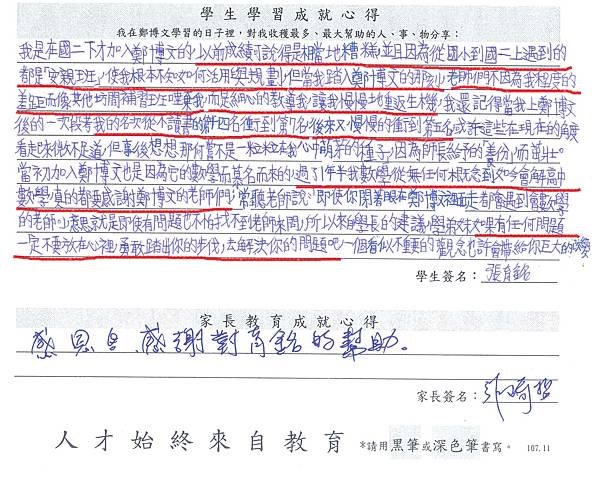 學生學習成就心得
我在鄭博文學習的日子裡，對我收穫最多、最大幫助的人、事、物分享：
我是在國二下才加入鄭博文的，以前成績可說得是相當地糟糕，並且因為從國小到國二上遇到的
都是「文親班」，使我根本不知如何活用與規劃，但當我踏入鄭博文的那刻，老師們不因為我程度的
差距而像其他坊間補習班唾棄我，而是細心的教導我，讓我慢慢地重返生機，我還記得當我上鄭博文
後的一次段考，我的名次從不讀書的第四名衝到第名，後來又慢慢的衝到第五名，或許這些在現在的角度
看起來微不足道，但事後想想，那何嘗不是一粒粒在我心中萌芽的種子，因為師長給予的「養份」而茁壯。
當初加入鄭博文也是因為它的數學而慕名而來的，過了1年半，我數學從無任何概念到如今會解高中
數學，真的都要感謝鄭博文的老師們，常聽老師說，即使你閉著眼在鄭博文裡走都會遇到會數學
的老師，意思就是即使有問題也不怕找不到老師來問，所以來自學長的建議，學弟妹如果有任何問題
一定不要放在心裡，勇敢踏出你的步伐，去解決你的問題吧，一個看似不重要的觀念也許會帶給你巨大的改變
學生簽名：張育銘
家長教育成就心得
感恩与感謝對育銘的幫助。
家長簽名：
人才始終來自教育 *請用黑筆或深色筆書寫。 107.11